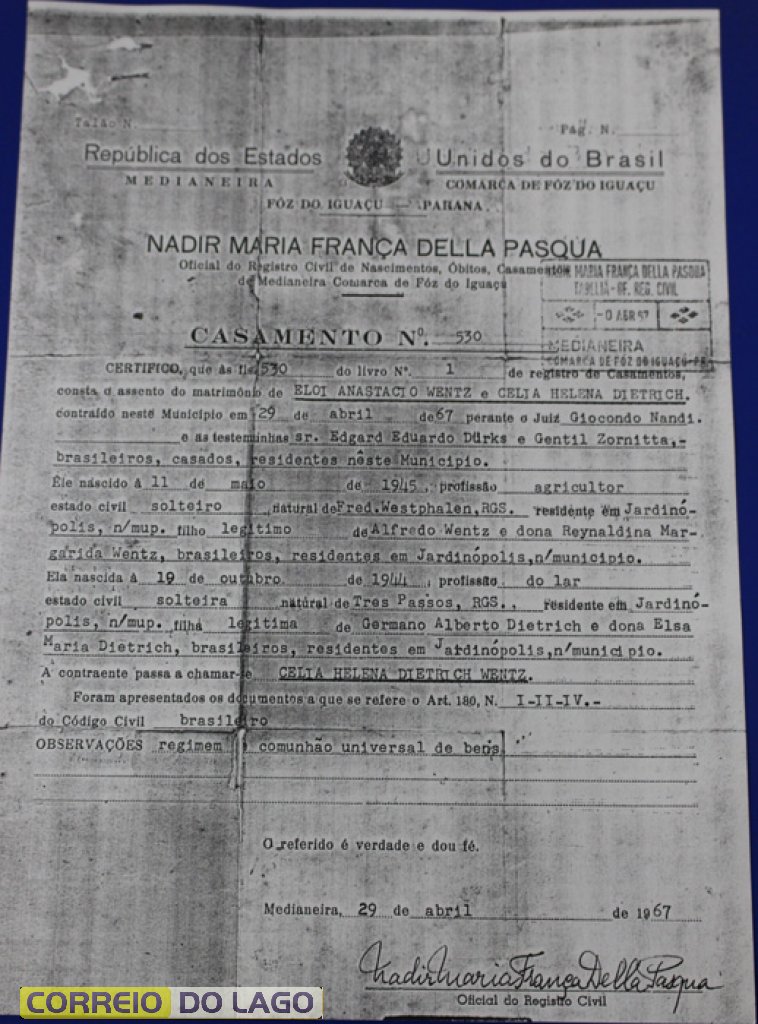 Talão N.
Pág. N.
República dos Estados Unidos do Brasil
MEDIANEIRA COMARCA DE FÓZ DO IGUAÇU
FÓZ DO IGUAÇU — PARANA
NADIR MARIA FRANÇA DELLA PASQUA
Oficial do Registro Civil de Nascimentos, Óbitos, Casamentos
de Medianeira Comarca de Fóz do Iguaçu
MARIA FRANÇA DELLA PASQUA
OF. REG. CIVIL
MEDIANEIRA
COMARCA DE FOZ DO IGUAÇU-PR
CASAMENTO Nº. 530
CERTIFICO, que às fls 530 do livro Nº. 1 de registro de Casamentos,
consta o assento do matrimônio de ELOI ANASTACIO WENTZ e CELIA HELENA DIETRICH.
contraído neste Município em 29 de abril de 67 perante o Juiz Giocondo Nandi.
e as testemunhas sr. Edgard Eduardo Dürks e Gentil Zornitta,-
brasileiros, casados, residentes nêste Municipio.
Êle náscido á 11 de maio de 1945, profissão agricultor
estado civil solteiro natural de Fred.Westphalen,RGS. residente em Jardinó-
polis, n/mup. filho legitimo de Alfredo Wentz e dona Reynaldina Mar-
garida Wentz, brasileiros, residentes em Jardinópolis,n/municipio.
Ela nascida á 19 de outubro de 1944, profissão do lar
estado civil solteira natural de Tres Passos, RGS., residente em Jardinó-
polis, n/mup. filha legitima de Germano Alberto Dietrich e dona Elsa
Maria Dietrich, brasileiros, residentes em Jardinópolis,n/municipio.
A contraente passa a chamar-se CELIA HELENA DIETRICH WENTZ.
Foram apresentados os documentos a que se refere o Art. 180, N. I-II-IV.-
do Código Civil brasileiro
OBSERVAÇÕES regimem comunhão universal de bens
O referido é verdade e dou fé.
Medianeira, 29 de abril de 1967
Nadir Maria França Della Pasqua
Oficial do Registro Civil
CORREIO DO LAGO